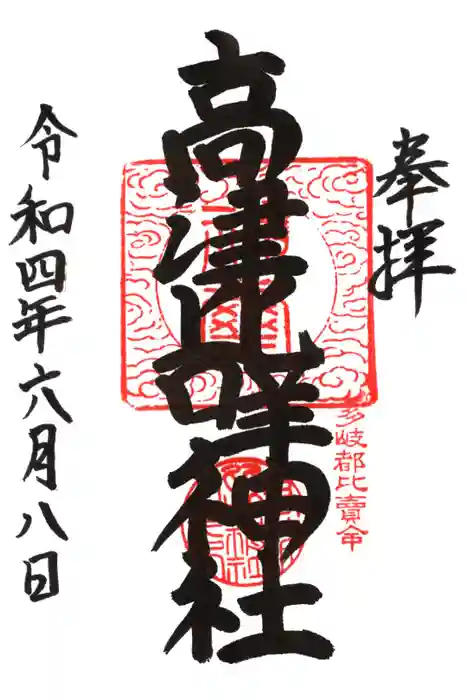 奉拝
多岐都比賣命
高津比咩神社
令和四年六月八日